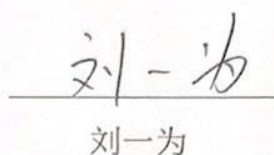 刘一为
刘一为